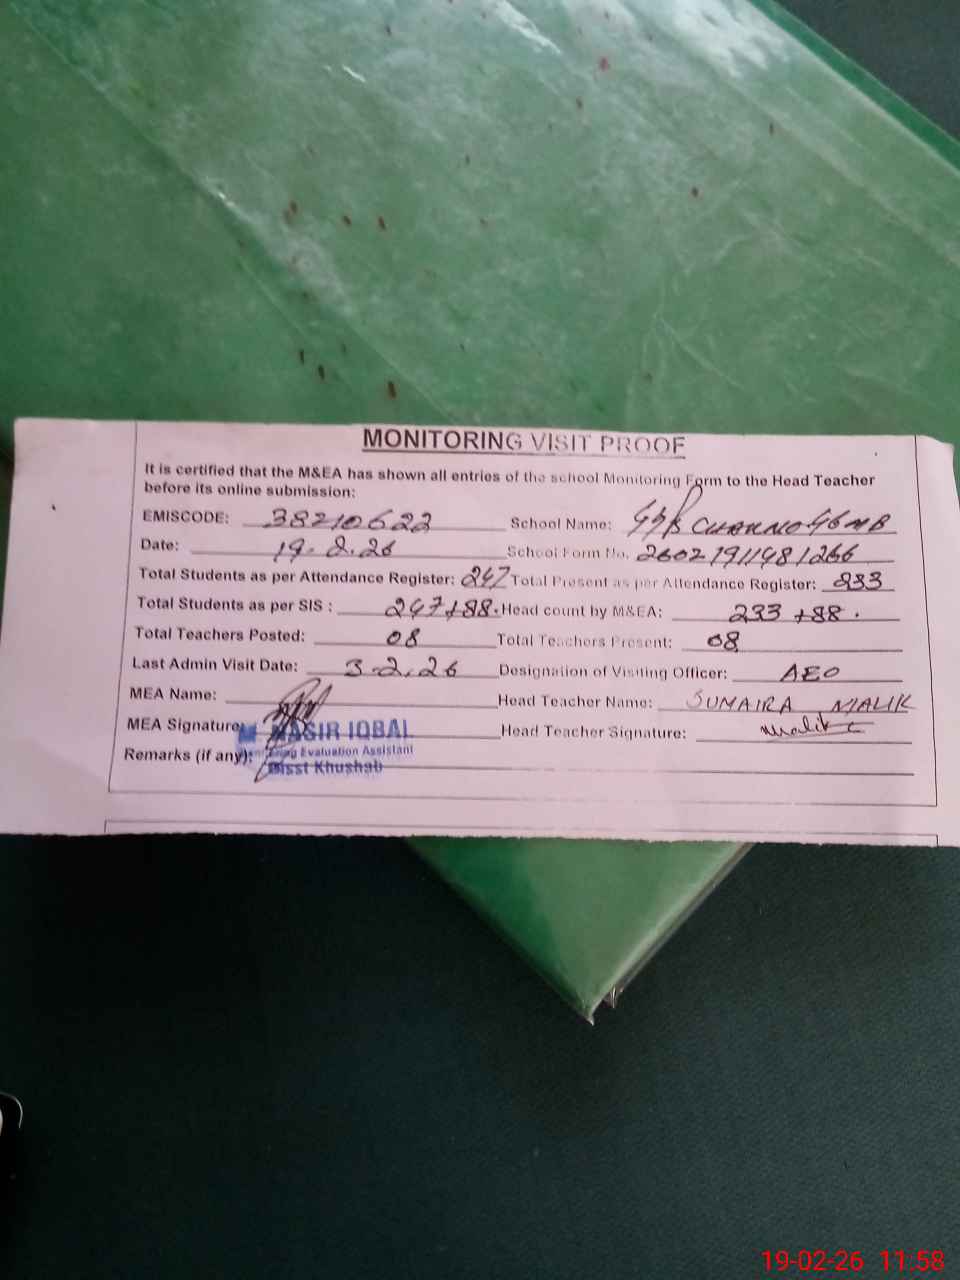 MONITORING VISIT PROOF
It is certified that the M&EA has shown all entries of the school Monitoring Form to the Head Teacher
before its online submission:
EMISCODE: 38210622 School Name: CHAK NO 46 MB
Date: 19.2.26 School Form No. 26021911481266
Total Students as per Attendance Register: 247 Total Present as per Attendance Register: 233
Total Students as per SIS : 247+88. Head count by M&EA: 233 +88.
Total Teachers Posted: 08 Total Teachers Present: 08
Last Admin Visit Date: 3-2.26 Designation of Visiting Officer: AEO
MEA Name: Head Teacher Name: SUMAIRA MALIK
MEA Signature: Head Teacher Signature: Malik
IQBAL
Evaluation Assistant
Remarks (if any):
Disst Khushab
19-02-26 11.58